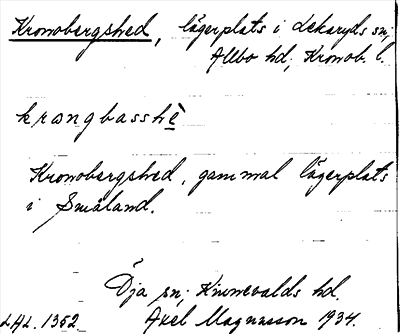 Kronobergshed, lägerplats i Lekaryds sn;
Allbo hd; Kronob. l.
krongbasshè
Kronobergshed, gammal lägerplats
i Småland.
Öja sn; Kinnevalds hd.
LAL. 1352. Axel Magnusson 1934.